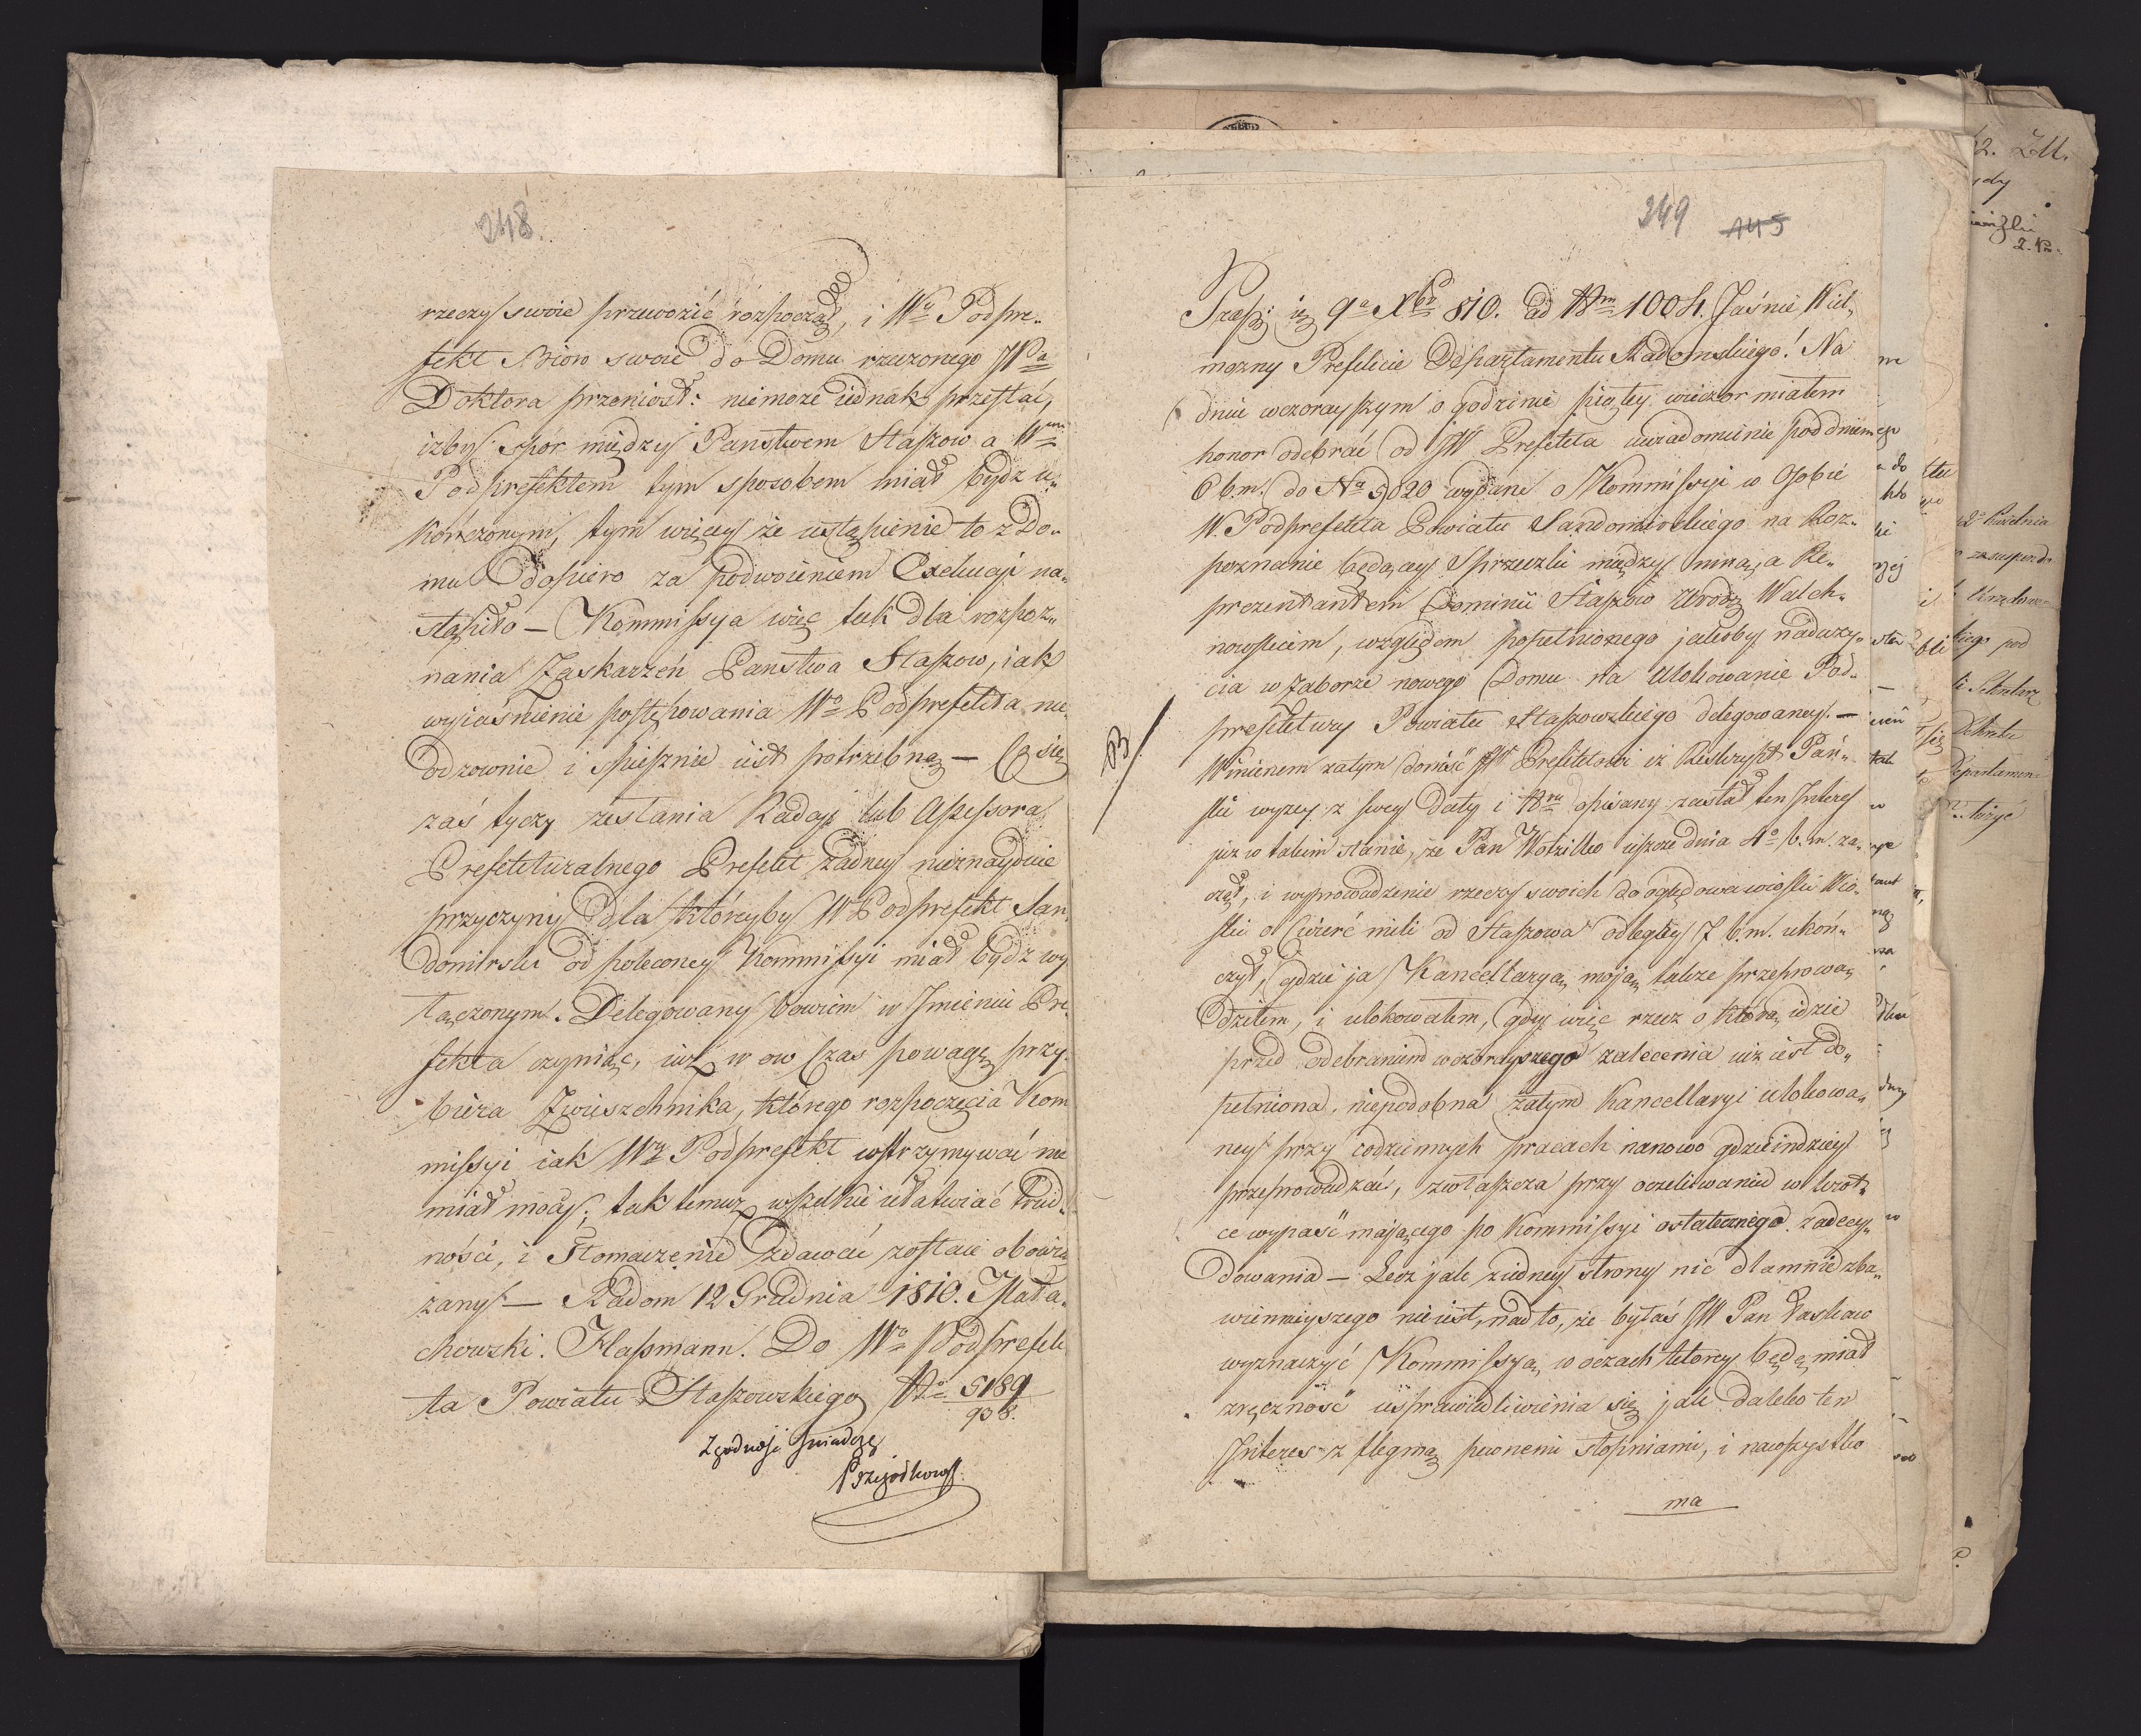 248.
rzeczy swoie przewozić rozpoczął, i Wy Podpre-
fekt Biόro swoie do Domu rzeczonego JPa
Doktora przeniosł: niemoże iednak przestać,
izby spór między Państwem Staszow a Wym
Podprefektem tym sposobem miał bydź u-
kończonym, tym więcey że ustąpienie to z Do-
mu dopiero za podwoieniem Exekucyi na-
stąpiło — Kommissya więc tak dla rozpoz-
nania Zaskarzeń Państwa Staszow, iak
wyiaśnienie postępowania Wo Podprefekta nie
odzownie i spiesznie iest potrzebną — Co się
zaś tycze zesłania Radcy lub Assessora
Prefekturalnego Prefekt żadney nieznayduie
przyczyny dla któreyby W Podprefekt San-
domirski od poleconey Kommissyi miał bydź wy
łączonym. Delegowany bowiem w Jmieniu Pre-
fekta czyniąc, iuż w ow czas powagę przy-
biera Zwierzchnika, którego rozpoczęcia Kom
missyi iak Wy Podprefekt wstrzymywać nie
miał mocy, tak temuż wszelkie ułatwiać trud-
ności, i Tłomaczenie zdawać zostaie obowią
zany — Radom 12 Grudnia 1810. Mała-
chowski. Hassmann. Do Wo Podprefek
ta Powiatu Staszowskiego No 5189
938.
Zgodność swiadczę
Przyiodkowsk
249 145
Præs: 9a Xbr 810. ad Nrm 1004. Jaśnie Wiel-
możny Prefekcie Departamentu Radomskiego! Na
dniu wczorayszym o godzinie piątey wieczor miałem
honor odebrać od JW Prefekta uwiadomienie pod dniem
6 b.m. do Na 5020 wydane o Kommissyi w Osobie
W. Podprefekta Powiatu Sandomirskiego na Roz-
poznanie będącey Sprzeczki między mną, a Re-
prezentantem Dominii Staszow Urodz Walch-
nowskim, względem popełnionego jakoby naduży-
cia w Zaborze nowego Domu na Ulokowanie Pod-
prefektury Powiatu Staszowskiego delegowaney. —
B/
Winienem zatym donieść JW Prefektowi iż Reskrypt Pań-
ski wyżey z swey Daty i Nru opisany zastał ten Interes
już w takim stanie, że Pan Wotzilko ieszcze dnia 4o b.m. za-
czął, i wyprowadzenie rzeczy swoich do Wio-
ski o ćwierć mili od Staszowa odległey 7 b.m. ukoń-
czył, gdzie ja Kancellaryą moją także przeprowa-
dziłem, i ulokowałem, gdy więc rzecz o którą idzie
przed odebraniem wczorayszego zalecenia iuż iest do-
pełniona, niepodobna zatym Kancellaryi ulokowa-
ney przy codziennych pracach nanowo gdzieindziey
przeprowadzać, zwłaszcza przy oczekiwaniu w krót-
ce wypaść mającego po Kommissyi ostatecznego zadecy-
dowania — Lecz jak z iedney strony nic dla mnie zba-
wiennieyszego nie iest, nad to, że byłaś JW Pan łaskaw
wyznaczyć Kommissyą, w oczach ktorey będę miał
zręczność usprawiedliwienia się jak daleko ten
Interes z flegmą pewnemi stopniami, i na wszystko
ma